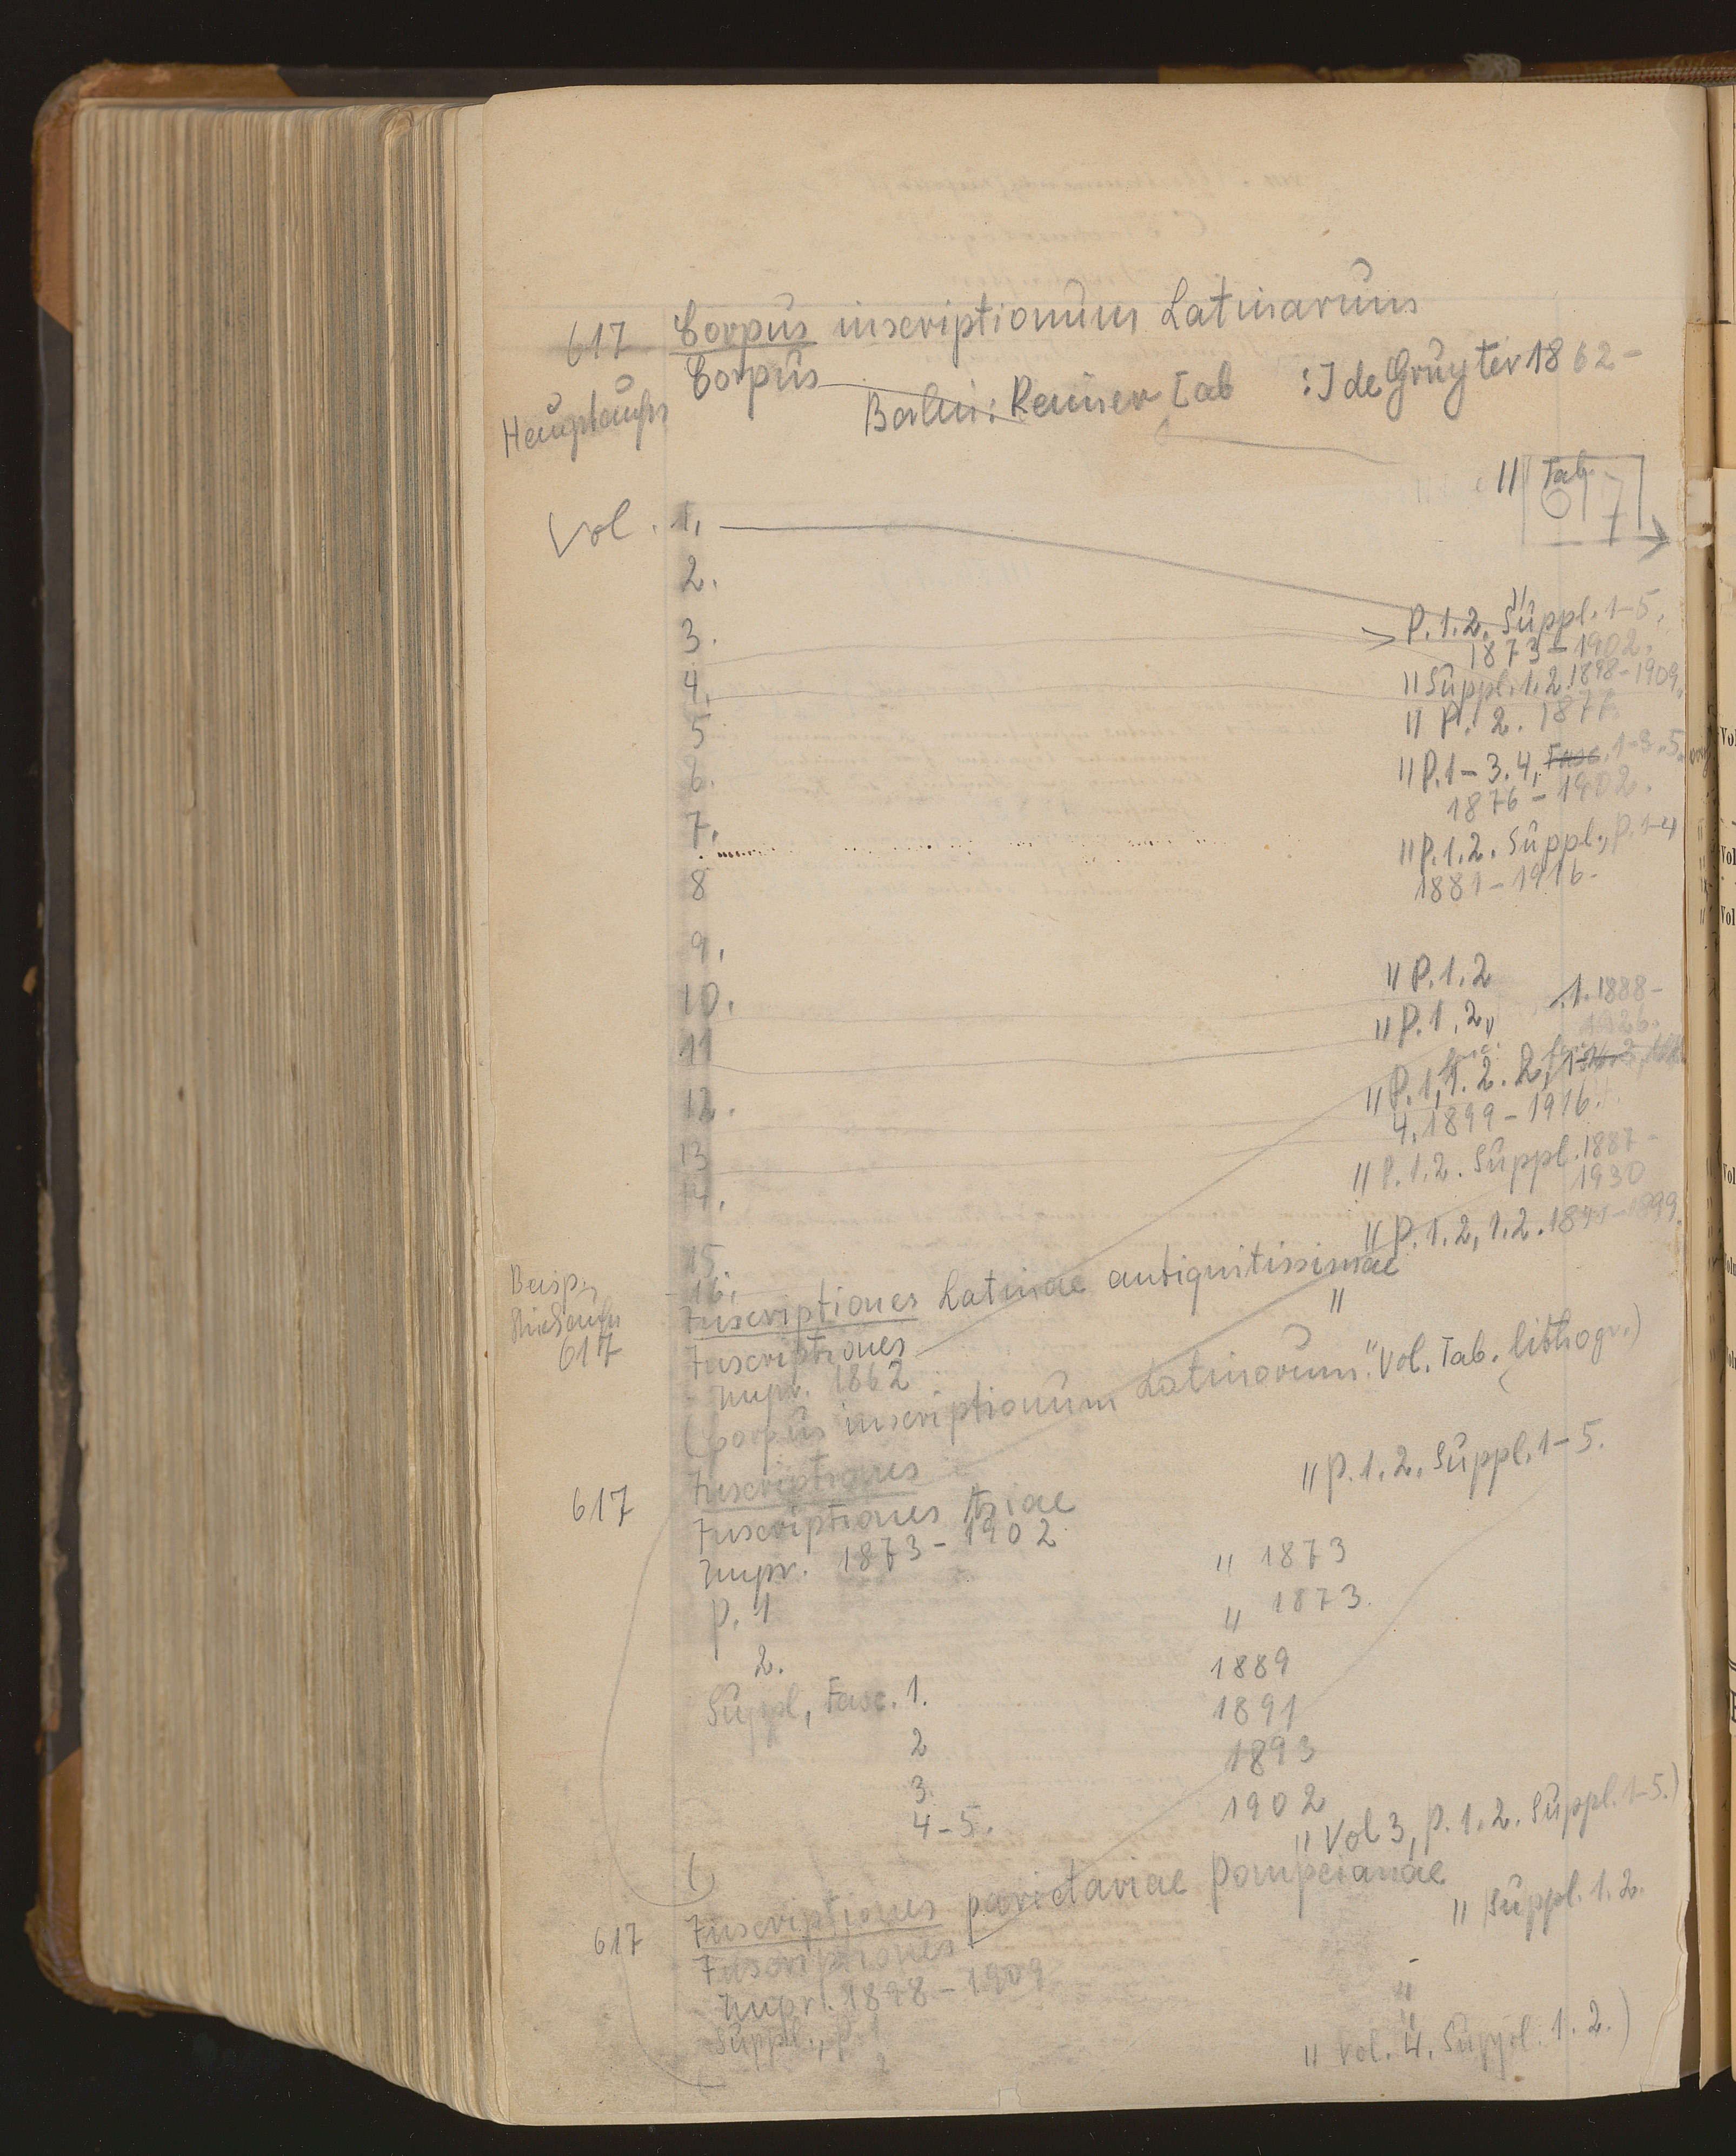 617 Corpus inscriptionum Latinarum
Corpus
Hauptaufn
Berlin: Reimer [ab : J de Gruyter 1862-
" Tab.
617
Vol. 1,
2.
3. P.1.2. Suppl. 1-5.
1873-1902.
4. " Suppl. 1.2. 1898-1909.
5 " P. 2. 1877.
6. " P.1-3.4, Fasc. 1-3.5.
1876-1902.
7.
8 " P.1.2. Suppl., P.1-4
1881-1916.
9.
10. " P.1.2
11 " P.1.2, 1. 1888-
1926.
12.
13 " P.1, 1.2.2,
4. 1899-1916.
14. " P.1.2. Suppl. 1887-
1930
15. " P.1.2, 1.2. 1899
16.
Beisp.
617
Inscriptiones Latinae antiquitissimae
Inscriptiones "
Impr. 1862
(Corpus inscriptionum Latinorum. " Vol. Tab. lithogr.)
Inscriptiones
617 " P.1.2. Suppl. 1-5.
Inscriptiones Asiae
Impr. 1873-1902
P. 1 " 1873
2. " 1873.
Suppl, Fasc. 1. 1889
2 1891
3. 1893
4-5. 1902
( " Vol 3, P.1.2. Suppl. 1-5.)
617 Inscriptiones parietariae Pompeianae
Inscriptiones " Suppl. 1.2.
Impr. 1898-1909
Suppl., P. 1 "
2 "
" Vol. 4. Suppl. 1.2.)